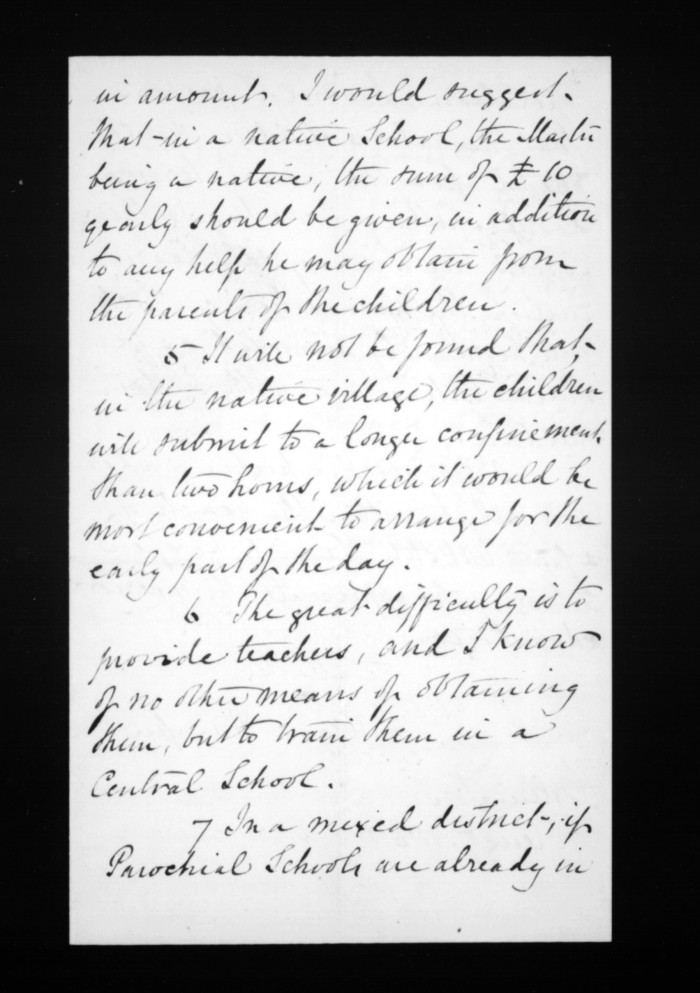 in amount. I would suggest
that in a native School, the Master
being a native, the sum of £10
only should be given, in addition
to any help he may obtain from
the parents of the children.
5 It will not be found that
in the native village, the children
will submit to a longer confinement
than two hours, which it would be
most convenient to arrange for the
early part of the day.
6 The great difficulty is to
provide teachers, and I know
of no other means of obtaining
them, but to train them in a
Central School.
7 In a mixed district, if
Parochial Schools are already in